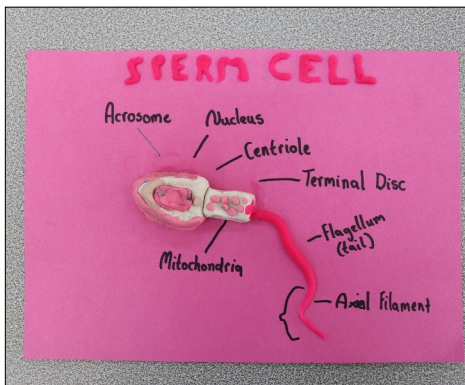 SPERM CELL
Acrosome
Nucleus
Centriole
Terminal Disc
Flagellum
(tail)
Mitochondria
Axial Filament